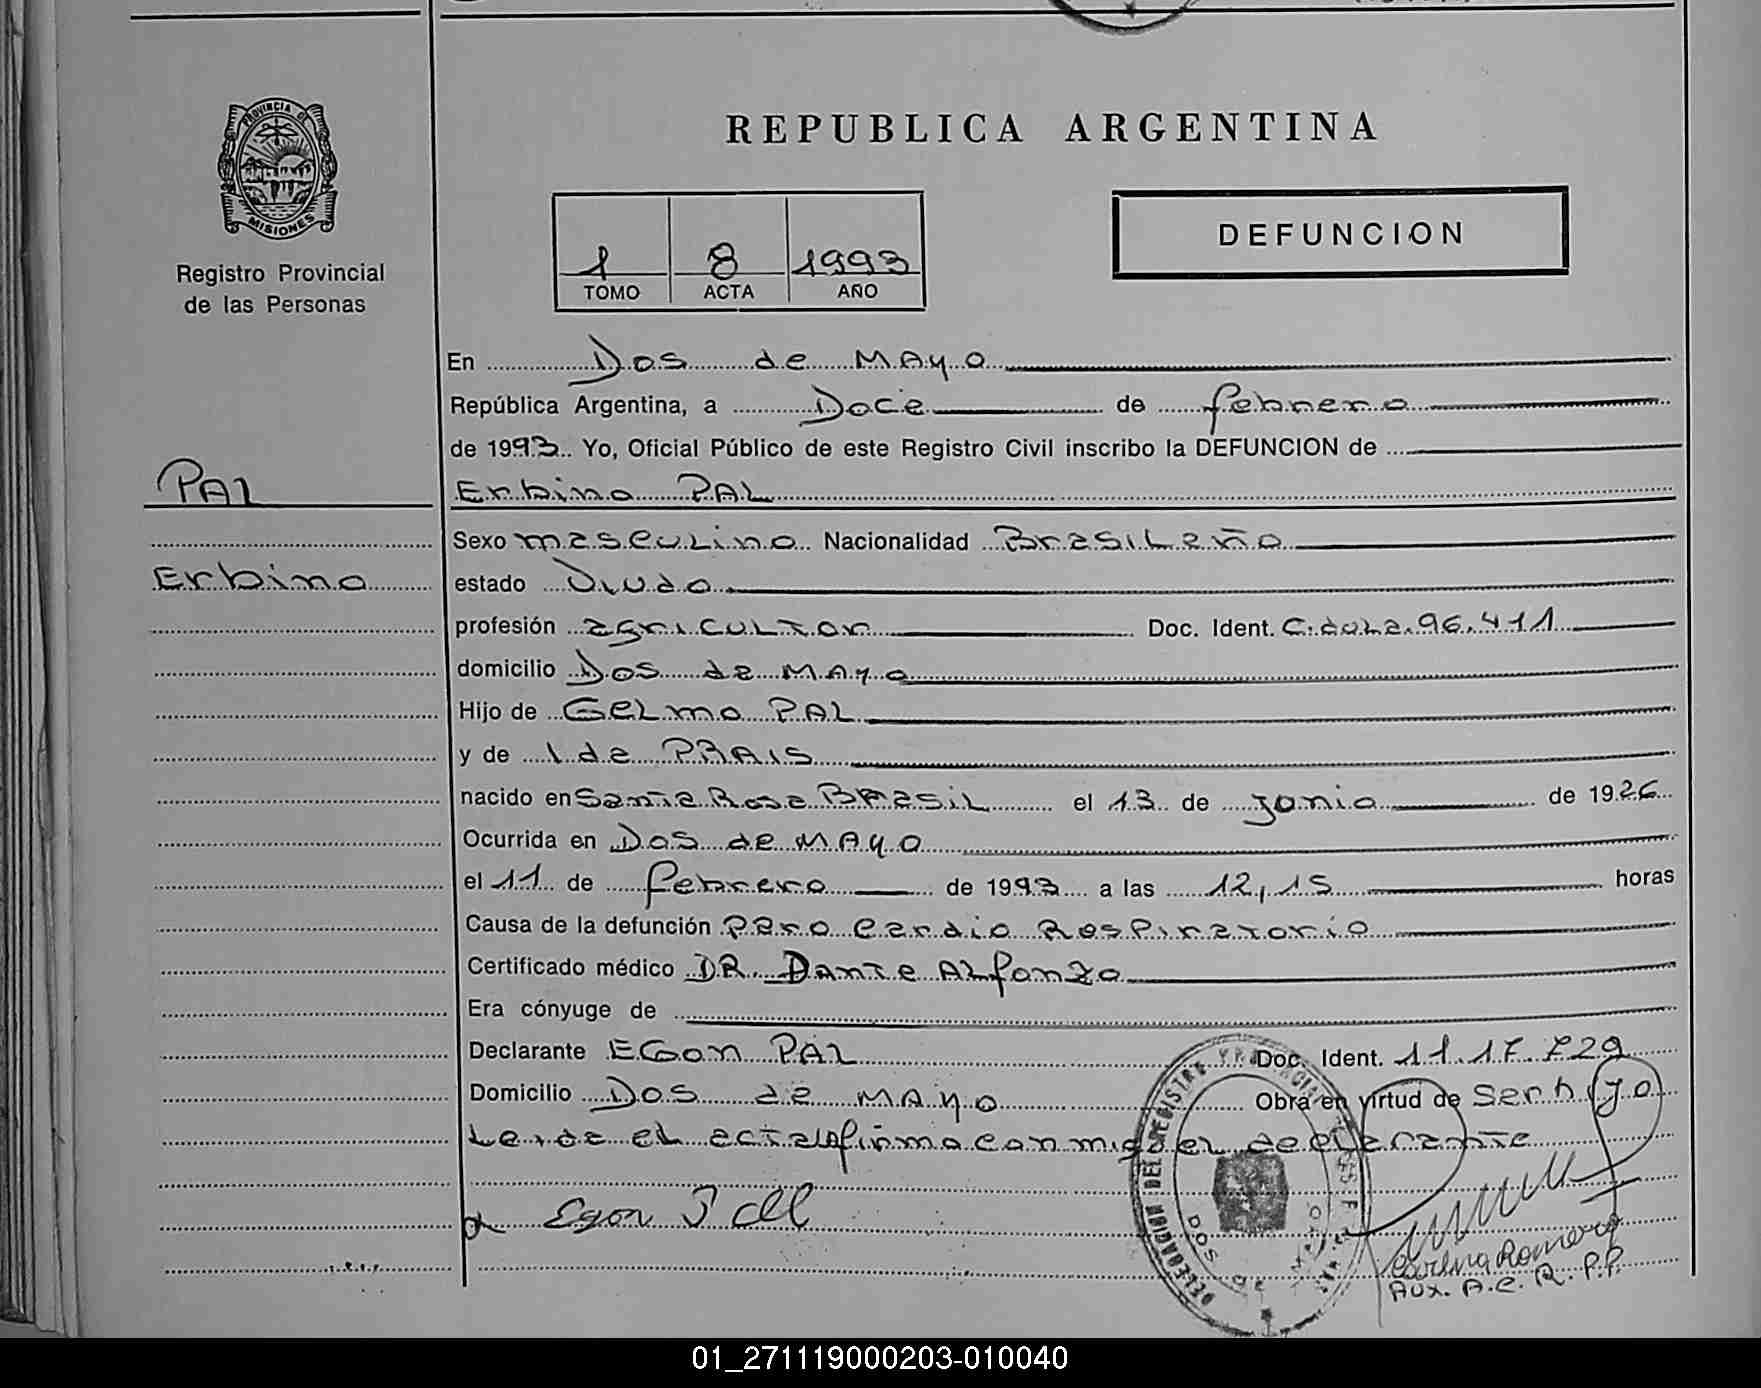 PROVINCIA DE
MISIONES
Registro Provincial
de las Personas
REPUBLICA ARGENTINA
1 8 1993
TOMO ACTA AÑO
DEFUNCION
En Dos de MAyo
República Argentina, a Doce de febrero
de 1993. Yo, Oficial Público de este Registro Civil inscribo la DEFUNCION de
PAL
Erbino PAL
Sexo masculino Nacionalidad Brasileño
Erbino
estado Viudo
profesión agricultor Doc. Ident. C.dula 96.411
domicilio Dos de MAyo
Hijo de Gelmo PAL
y de Ida PRAIS
nacido en Santa Rosa BRasil el 13 de junio de 1926
Ocurrida en Dos de MAyo
el 11 de febrero de 1993 a las 12,15 horas
Causa de la defunción Paro cardio Respiratorio
Certificado médico DR. Dante Alfonzo
Era cónyuge de
Declarante EGon PAL Doc. Ident. 11.17.729
Domicilio Dos de MAyo Obra en virtud de Ser hijo
Leida el acta la firma conmigo el declarante
Egon Pall
DELEGACION DEL REGISTRO
DOS DE
Romero
Aux. A.C. R. P.P.
01_271119000203-010040